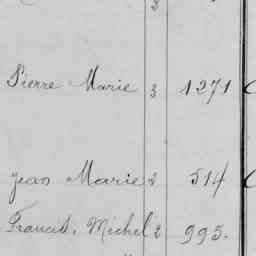 2
Pierre Marie 3 1271
Jean Marie 2 514
Francis, Michel 2 995.